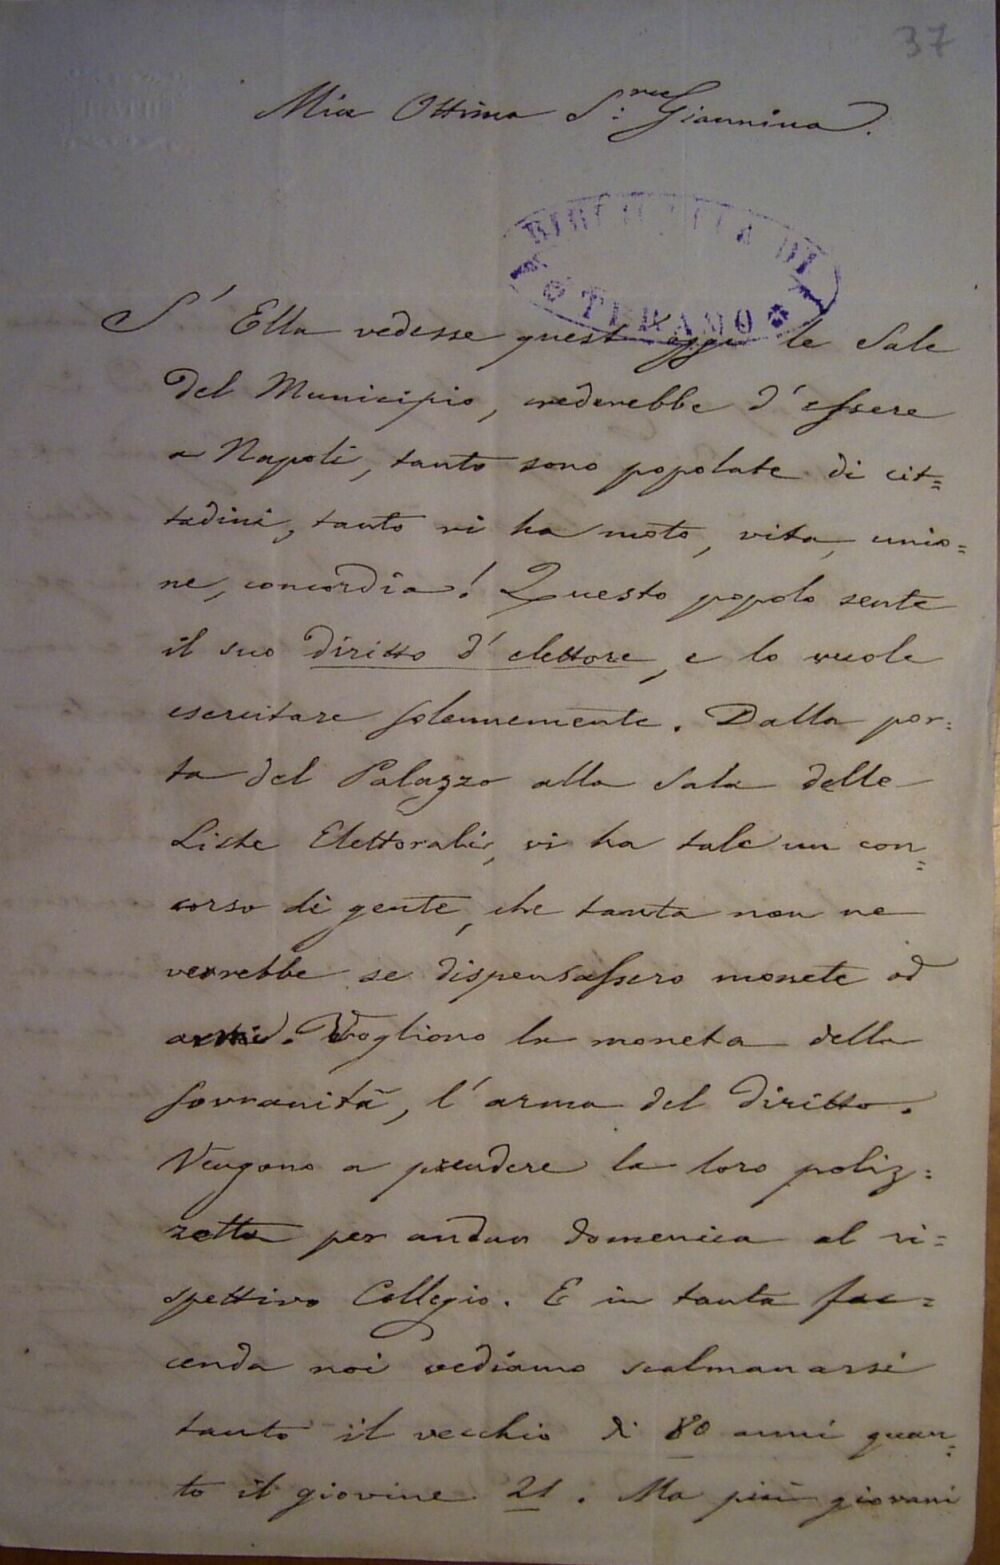 37
Mia Ottima S.ra Giannina.
BIBLIOTECA DI
TERAMO
S' Ella vedesse quest'oggi le Sale
del Municipio, crederebbe d'essere
a Napoli, tanto sono popolate di cit=
tadini, tanto vi ha moto, vita, unio=
ne, concordia! Questo popolo sente
il suo diritto d'elettore, e lo vuole
esercitare solennemente. Dalla por=
ta del Palazzo alla Sala delle
Liste Elettorali, vi ha tale un con=
corso di gente, che tanta non ne
verrebbe se dispensassero monete od
armi. Vogliono la moneta della
sovranità, l'arma del diritto.
Vengono a prendere la loro poliz=
zetta per andar domenica al ri=
spettivo Collegio. E in tanta fac=
cenda noi vediamo scalmanarsi
tanto il vecchio di 80 anni quan=
to il giovine 21. Ma più giovani